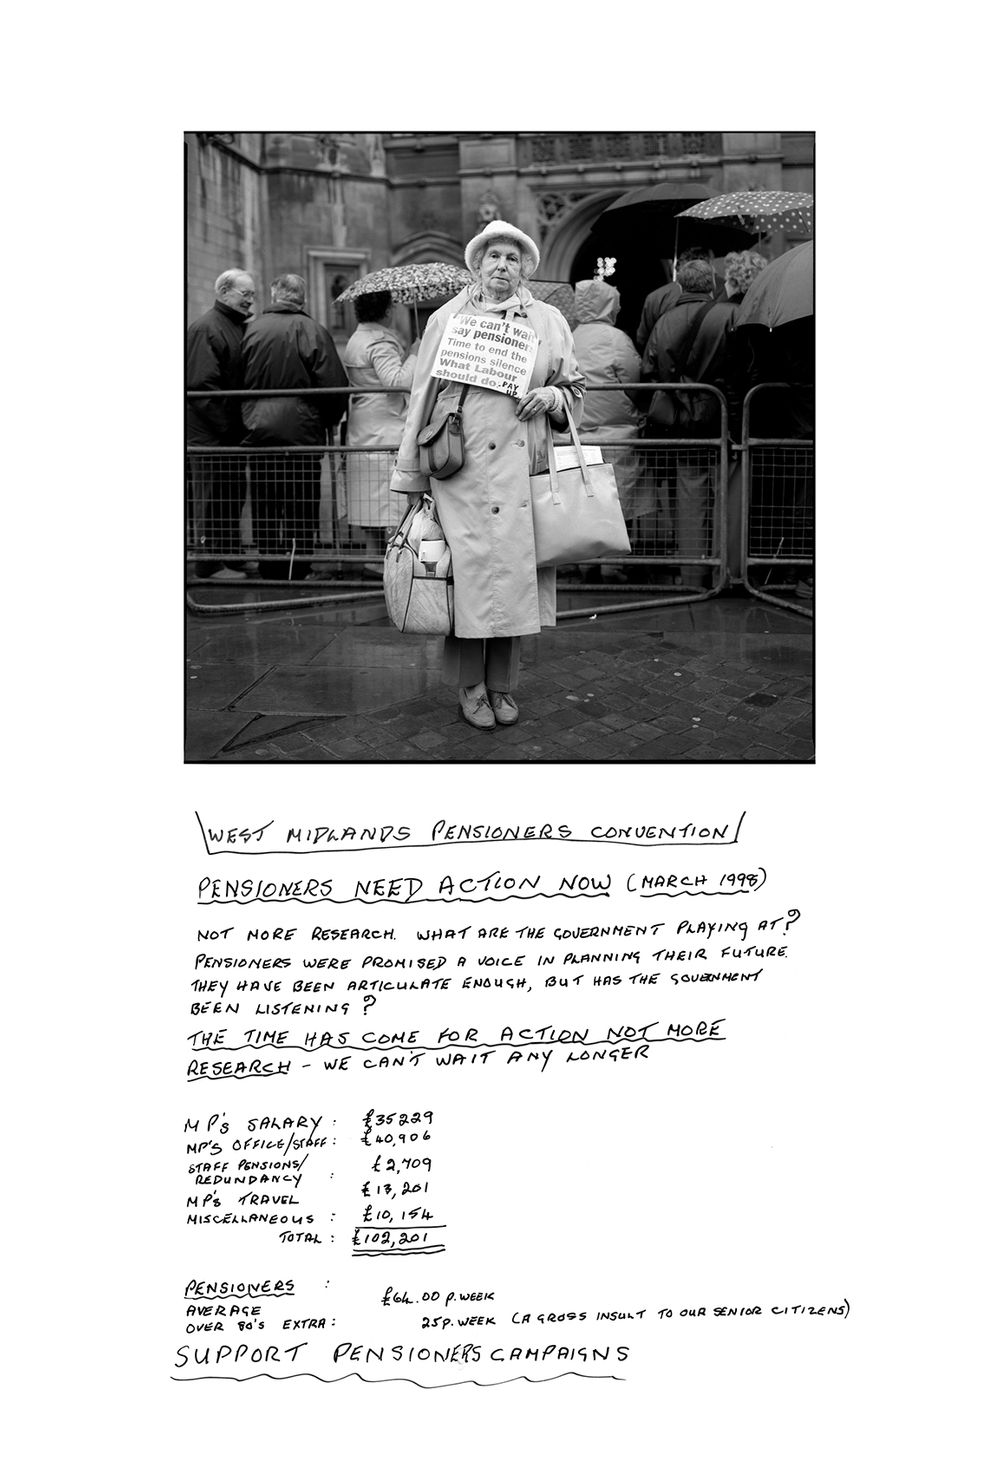 We can't wait
say pensioners
Time to end the
pensions silence
What Labour
should do. PAY
UP
WEST MIDLANDS PENSIONERS CONVENTION
PENSIONERS NEED ACTION NOW (MARCH 1998)
NOT MORE RESEARCH. WHAT ARE THE GOVERNMENT PLAYING AT?
PENSIONERS WERE PROMISED A VOICE IN PLANNING THEIR FUTURE.
THEY HAVE BEEN ARTICULATE ENOUGH, BUT HAS THE GOVERNMENT
BEEN LISTENING?
THE TIME HAS COME FOR ACTION NOT MORE
RESEARCH - WE CAN'T WAIT ANY LONGER
MP's SALARY: £35229
MP'S OFFICE/STAFF: £40,906
STAFF PENSIONS/
REDUNDANCY : £2,709
MP's TRAVEL £13,201
MISCELLANEOUS : £10,154
TOTAL: £102,201
PENSIONERS :
AVERAGE £64.00 P.WEEK
OVER 80'S EXTRA: 25P.WEEK (A GROSS INSULT TO OUR SENIOR CITIZENS)
SUPPORT PENSIONERS CAMPAIGNS